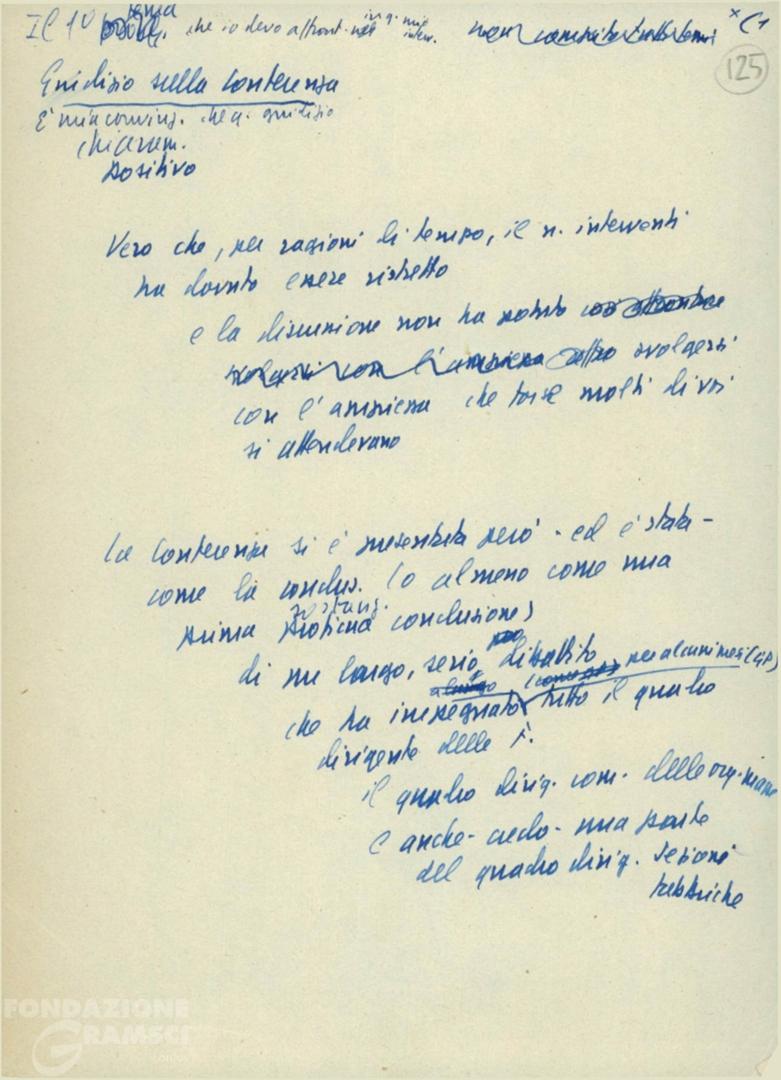 Il 1º tema che io devo affront. nel mio interv. × C1
125
Giudizio sulla Conferenza
È mia convinz. che q. giudizio
chiaram.
positivo
Vero che, per ragioni di tempo, il n. interventi
ha dovuto essere ristretto
e la discussione non ha potuto
svolgersi con l'ampiezza svolgersi
con l'ampiezza che forse molti di voi
si attendevano
La Conferenza si è presentata però - ed è stata -
come la conclus. (o almeno come una
sostanz.
prima conclusione)
di un lungo, serio dibattito
per alcuni mesi
che ha impegnato tutto il quadro
dirigente delle F.
il quadro dirig. com. delle org. massa
e anche - credo - una parte
del quadro dirig. sezioni
fabbriche
FONDAZIONE
GRAMSCI